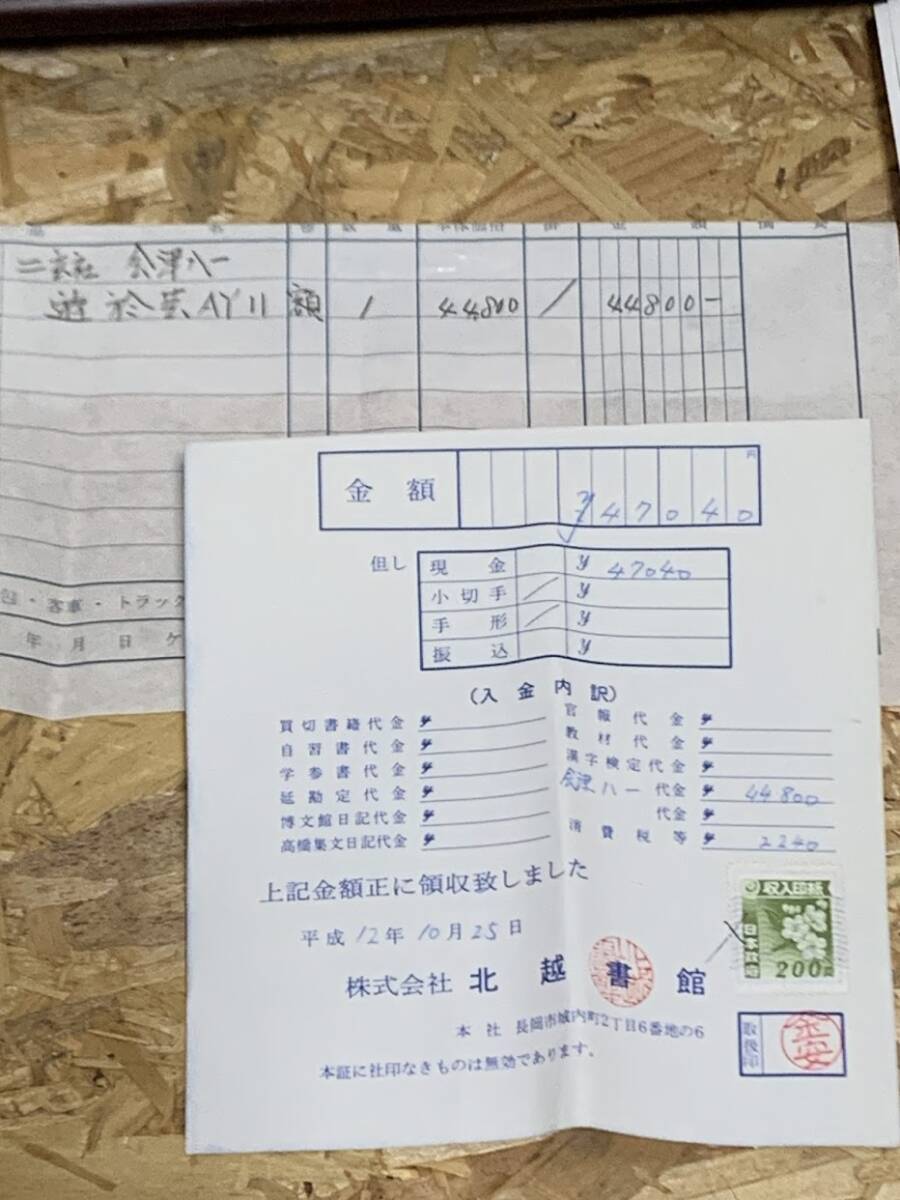 数量 本体価格 金額 備考
二玄社 会津八一
遊於芸 AY11 額 1 44,800 / 44800-
・客車・トラック
年 月 日
金額 円 ¥47040
但し
現金 ¥ 47040
小切手 / ¥
手形 / ¥
振込 ¥
(入金内訳)
買切書籍代金 ¥
自習書代金 ¥
学参書代金 ¥
延勘定代金 ¥
博文館日記代金 ¥
高橋集文日記代金 ¥
官報代金 ¥
教材代金 ¥
漢字検定代金 ¥
会津八一代金 ¥ 44800
代金 ¥
消費税等 ¥ 2240
上記金額正に領収致しました
平成12年10月25日
収入印紙
日本政府
200円
株式会社 北越書館
本社 長岡市城内町2丁目6番地の6
本証に社印なきものは無効であります。
取扱印